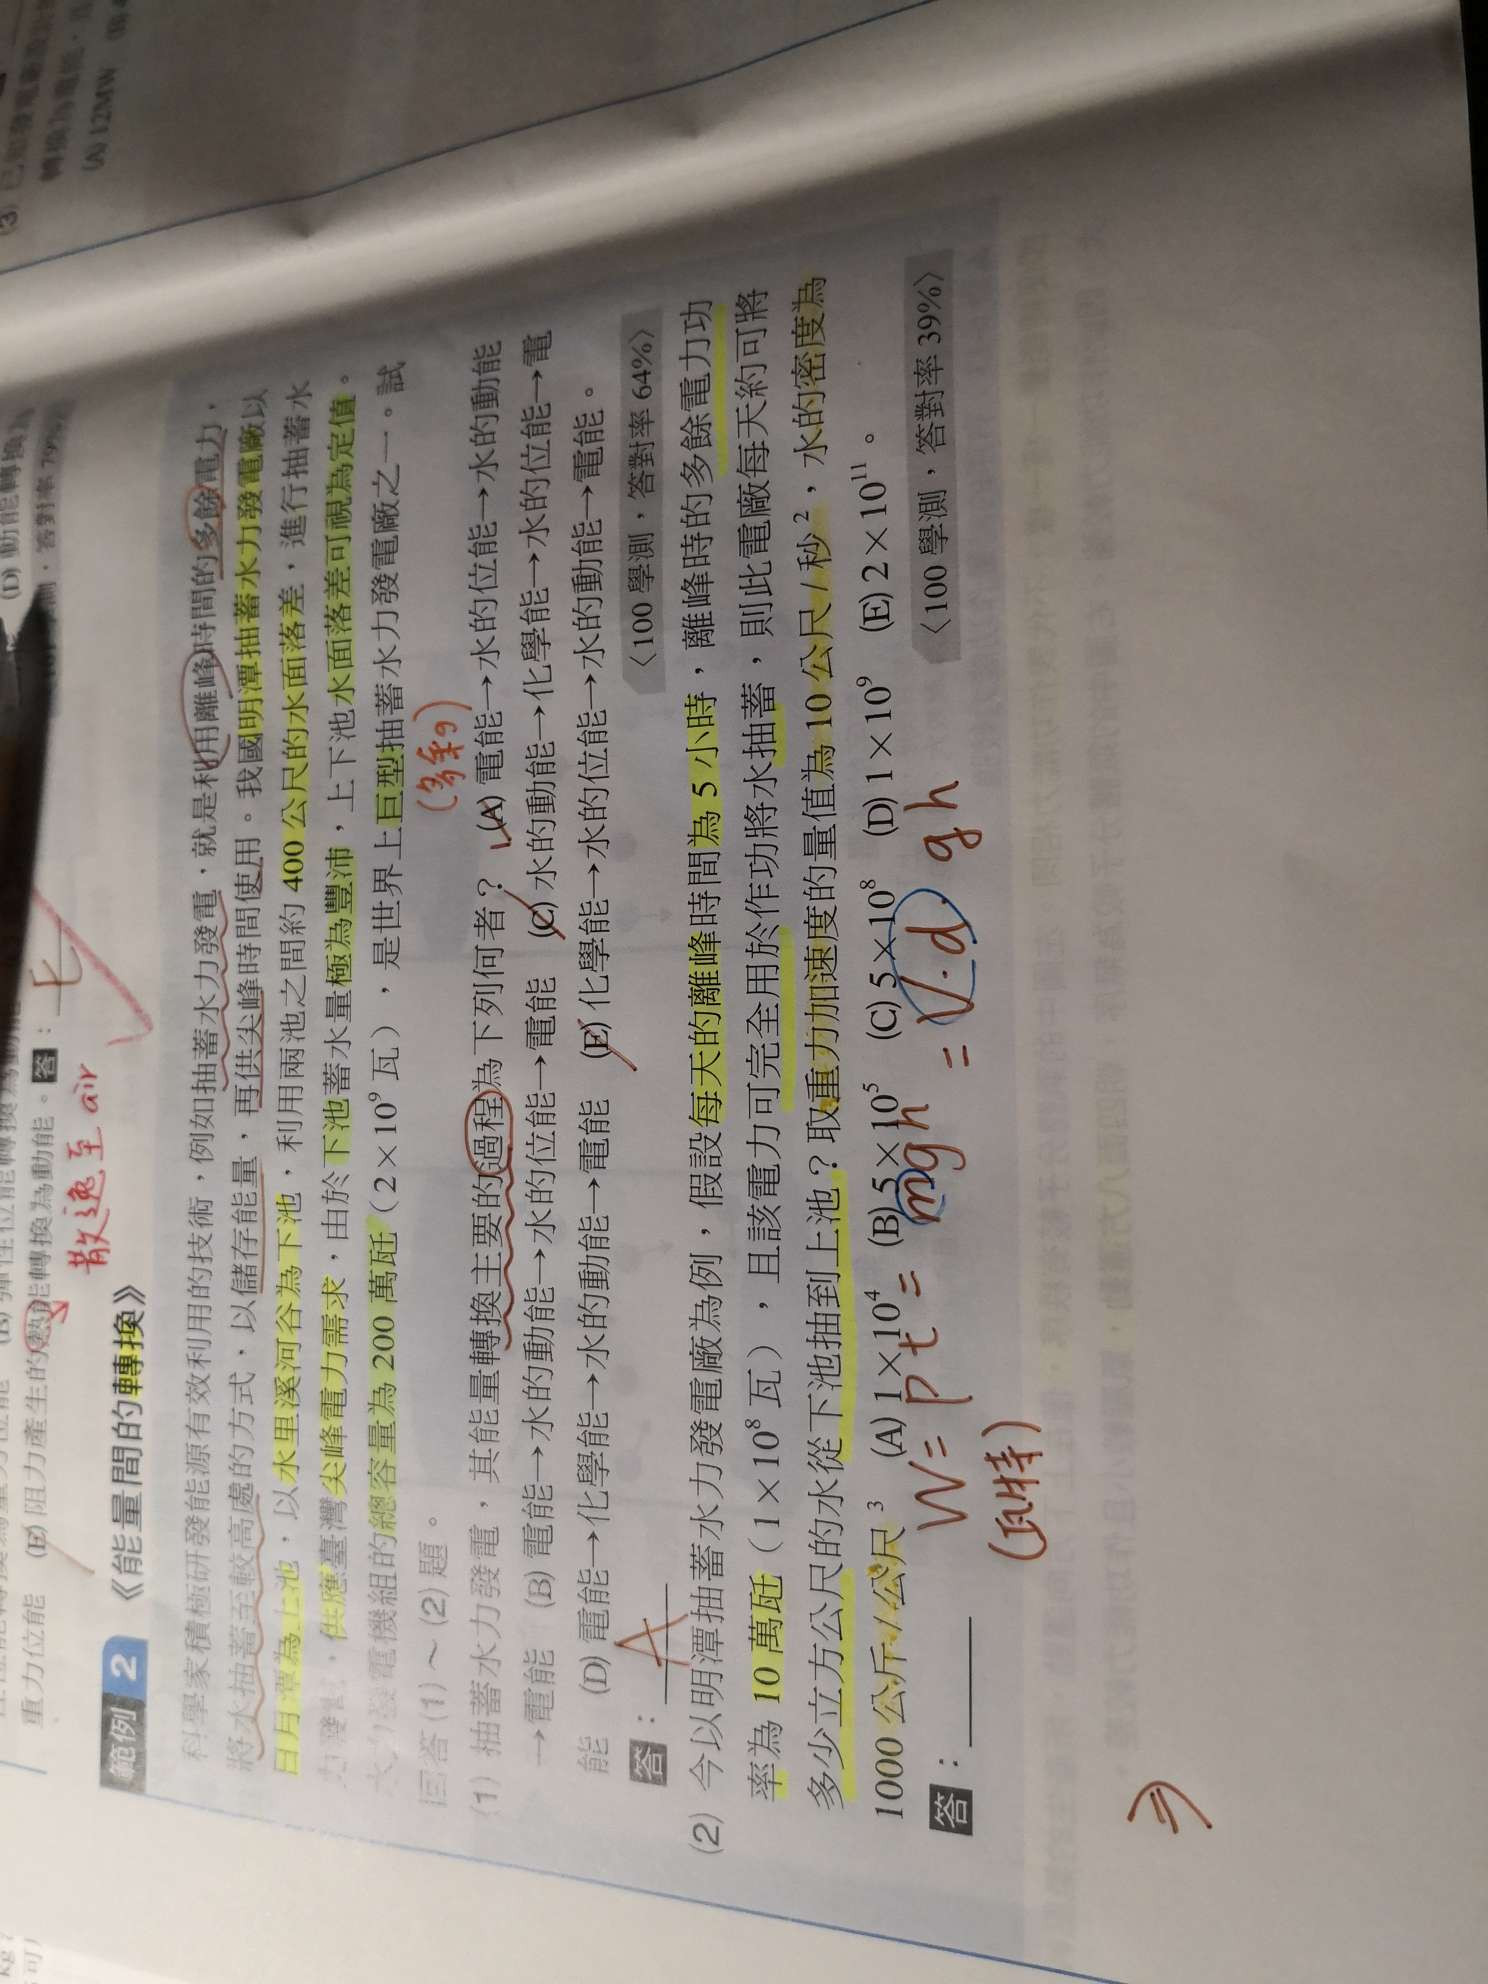 (3) 已知發電廠
(A) 12MW
(D) 動能轉換為
答對率 79%
重力位能 (E) 阻力產生的熱能轉換為動能。 答：
七
散逸至 air
範例 2 《能量間的轉換》
科學家積極研發能源有效利用的技術，例如抽蓄水力發電，就是利用離峰時間的多餘電力，
將水抽蓄至較高處的方式，以儲存能量，再供尖峰時間使用。我國明潭抽蓄水力發電廠以
日月潭為上池，以水里溪河谷為下池，利用兩池之間約 400 公尺的水面落差，進行抽蓄水
力發電，供應臺灣尖峰電力需求，由於下池蓄水量極為豐沛，上下池水面落差可視為定值。
水力發電機組的總容量為 200 萬瓩（2×10⁹ 瓦），是世界上巨型抽蓄水力發電廠之一。試
回答 (1)～(2) 題。
(1) 抽蓄水力發電，其能量轉換主要的過程為下列何者？ (A) 電能→水的位能→水的動能
→電能 (B) 電能→水的動能→水的位能→電能 (C) 水的動能→化學能→水的位能→電
能 (D) 電能→化學能→水的動能→電能 (E) 化學能→水的位能→水的動能→電能。
答：A 〈100 學測，答對率 64%〉
(2) 今以明潭抽蓄水力發電廠為例，假設每天的離峰時間為 5 小時，離峰時的多餘電力功
率為 10 萬瓩（1×10⁸ 瓦），且該電力可完全用於作功將水抽蓄，則此電廠每天約可將
多少立方公尺的水從下池抽到上池？取重力加速度的量值為 10 公尺/秒²，水的密度為
1000 公斤/公尺³ (A) 1×10⁴ (B) 5×10⁵ (C) 5×10⁸ (D) 1×10⁹ (E) 2×10¹¹。
答： 〈100 學測，答對率 39%〉
W = Pt = mgh = V·d gh
(瓦特)
⇒